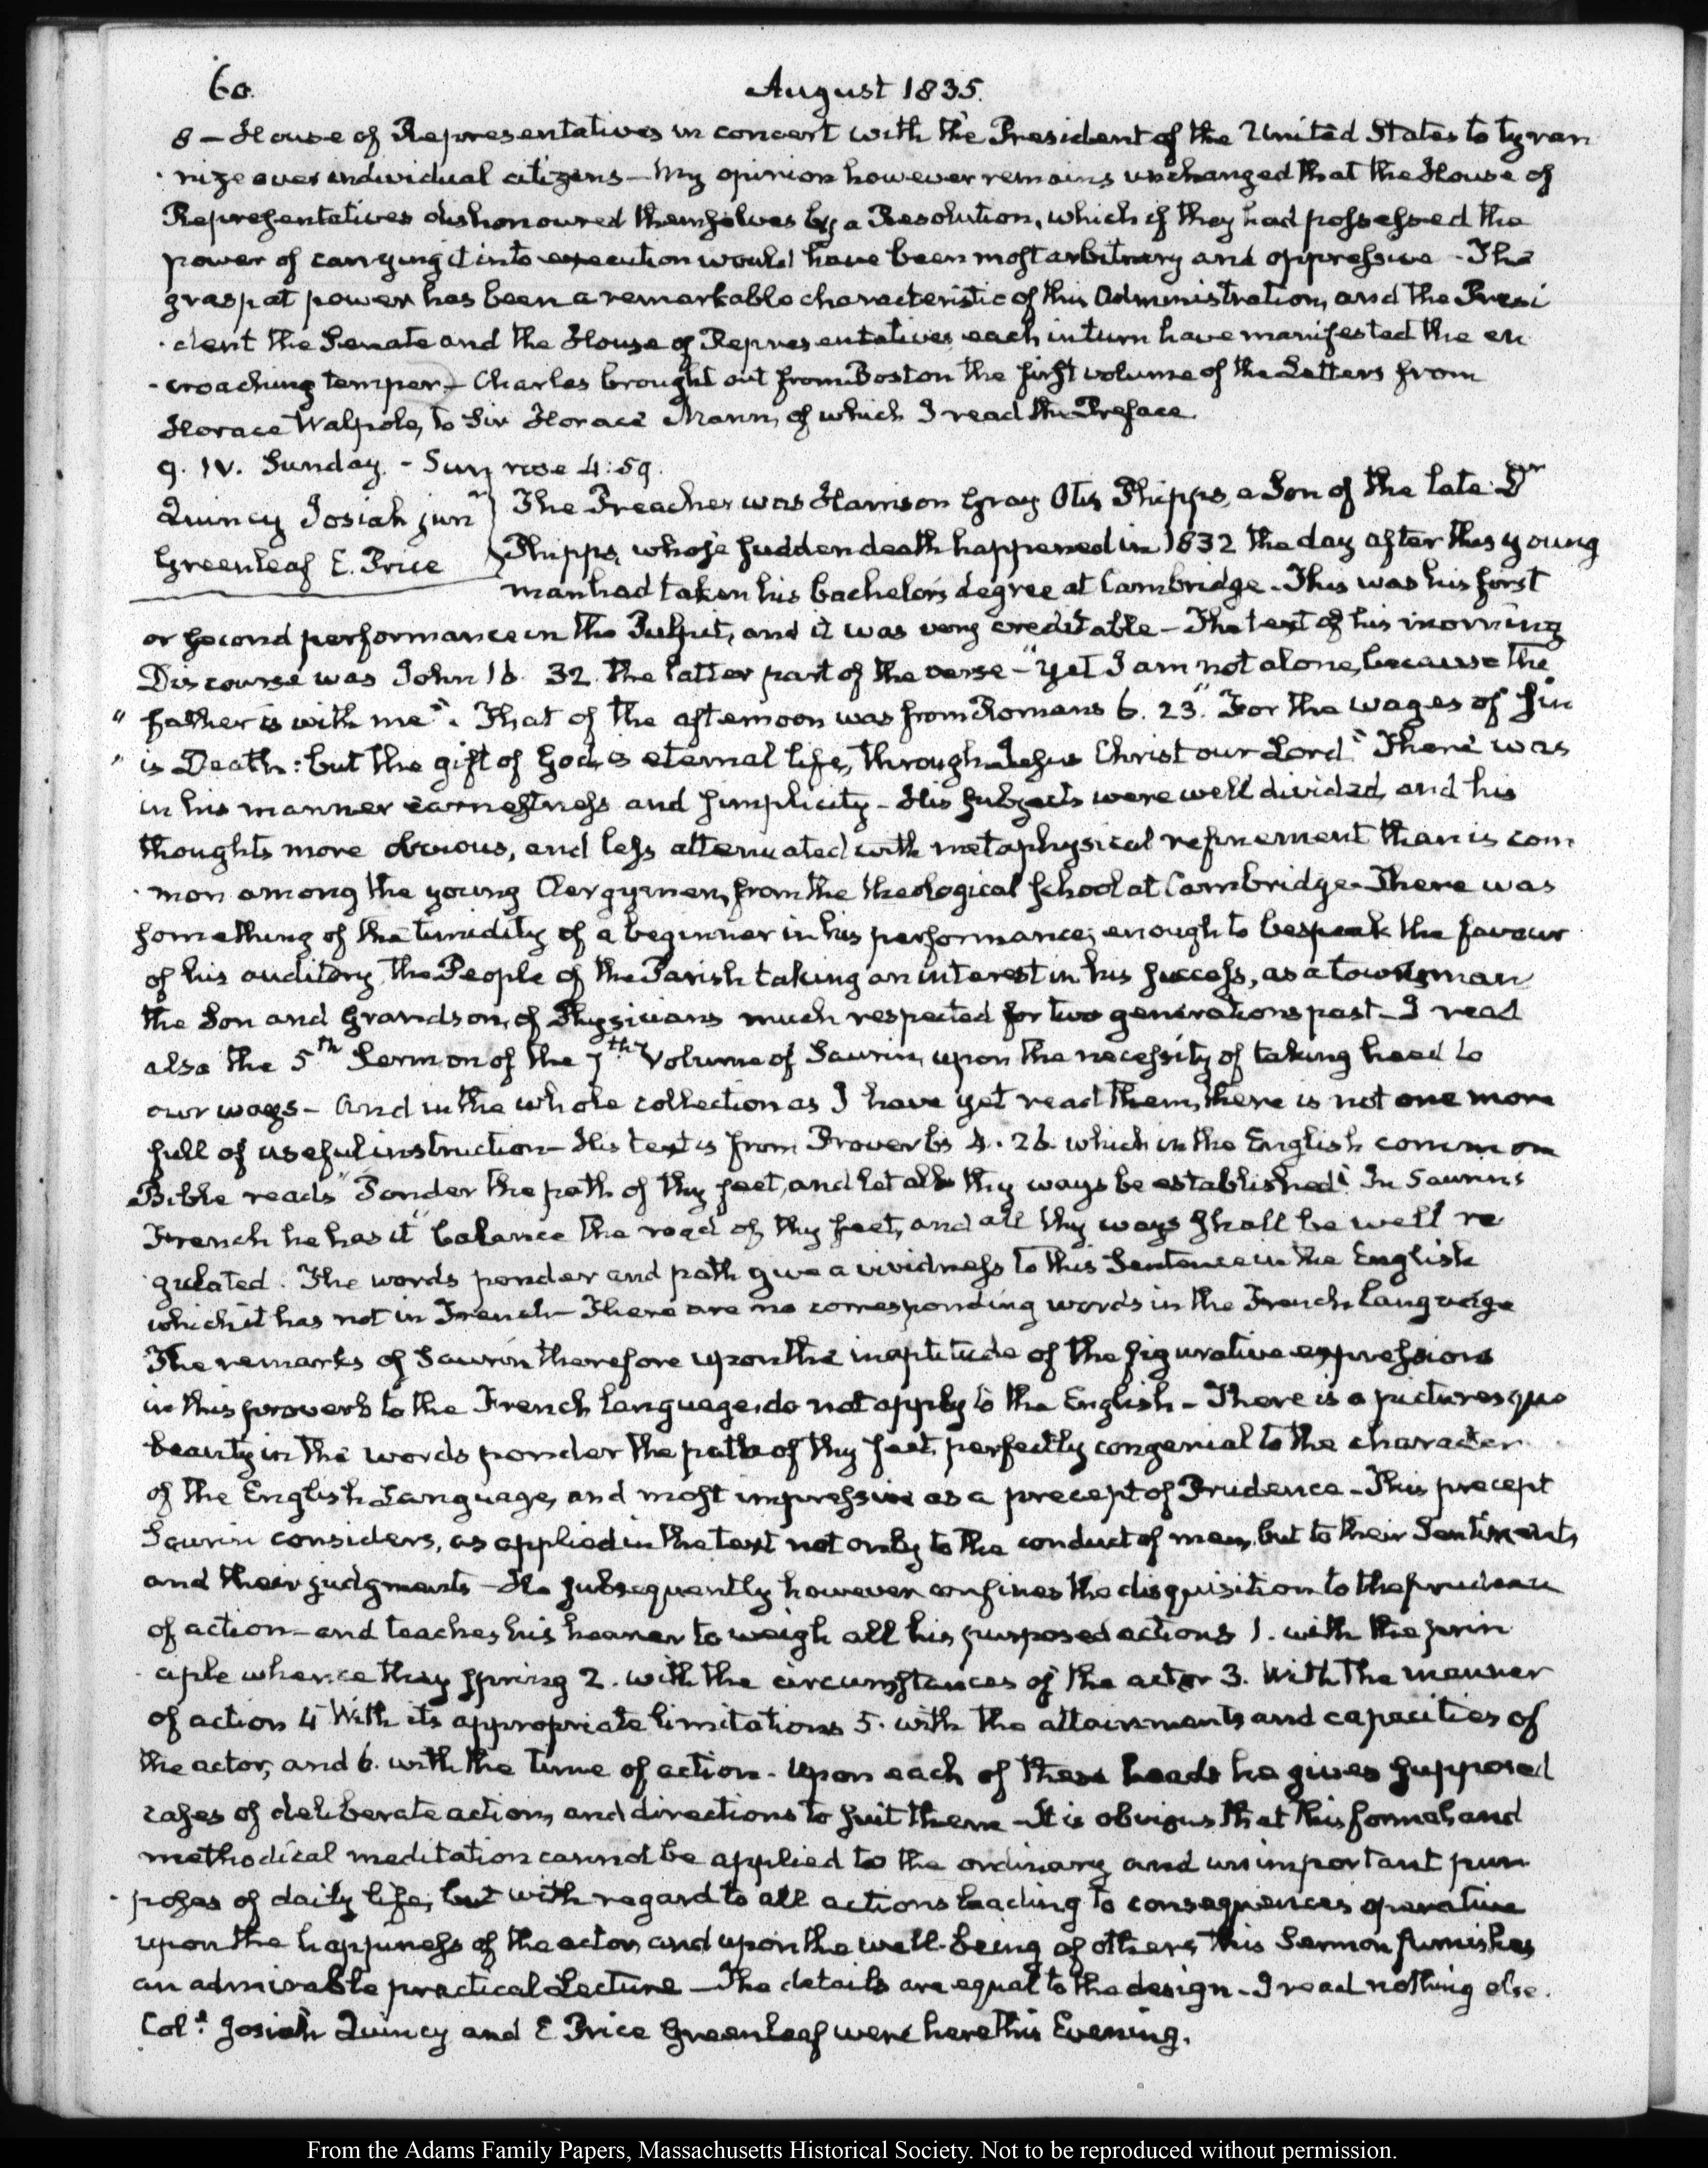 60.
August 1835.
8 — House of Representatives in concert with the President of the United States to tyran
nize over individual citizens — My opinion however remains unchanged that the House of
Representatives dishonoured themselves by a Resolution, which if they had possessed the
power of carrying it into execution would have been most arbitrary and oppressive - The
grasp at power has been a remarkable characteristic of this Administration, and the Presi
dent the Senate and the House of Representatives, each in turn have manifested the en
croaching temper — Charles brought out from Boston the first volume of the Letters from
Horace Walpole, to Sir Horace Mann, of which I read the Preface.
9. IV. Sunday. - Sun rose 4:59.
Quincy Josiah junr
Greenleaf E. Price
The Preacher was Harrison Gray Otis Phipps, a Son of the late Dr
Phipps, whose sudden death happened in 1832 the day after this young
man had taken his bachelor's degree at Cambridge. This was his first
or second performance in the Pulpit, and it was very creditable — The text of his morning
Discourse was John 16. 32. the latter part of the verse — "yet I am not alone, because the
" father is with me". That of the afternoon was from Romans 6. 23. "For the wages of sin
" is Death: but the gift of God, is eternal life, through Jesus Christ our Lord" There was
in his manner earnestness and simplicity - His subjects were well divided, and his
thoughts more obvious, and less attenuated with metaphysical refinement than is com
mon among the young Clergymen, from the theological school at Cambridge. There was
something of the timidity of a beginner in his performance; enough to bespeak the favour
of his auditory, the People of the Parish taking an interest in his success, as a townsman
the Son and Grandson, of Physicians much respected for two generations past - I read
also the 5th Sermon of the 7th Volume of Saurin, upon the necessity of taking heed to
our ways - And in the whole collection as I have yet read them, there is not one more
full of useful instruction — His text is from Proverbs 4. 26. which in the English common
Bible reads "Ponder the path of thy feet, and let all thy ways be established" In Saurin's
French he has it "balance the road of thy feet, and all thy ways shall be well re
gulated. The words ponder and path give a vividness to this Sentence in the English
which it has not in French — There are no corresponding words in the French language
The remarks of Saurin therefore upon the inaptitude of the figurative expressions
in this proverb to the French language, do not apply to the English - There is a picturesque
beauty in the words ponder the path of thy feet, perfectly congenial to the character
of the English Language, and most impressive as a precept of Prudence - This precept
Saurin considers, as applied in the text not only to the conduct of men, but to their Sentiments
and their judgments — He subsequently however confines the disquisition to the prudence
of action — and teaches his hearer to weigh all his purposed actions 1. with the prin
ciple whence they spring 2. with the circumstances of the actor 3. With the manner
of action 4 With its appropriate limitations 5. with the attainments and capacities of
the actor, and 6. with the time of action - Upon each of these heads he gives supposed
cases of deliberate action, and directions to suit them - It is obvious that this formal and
methodical meditation cannot be applied to the ordinary and unimportant pur
poses of daily life, but with regard to all actions leading to consequences operative
upon the happiness of the actor, and upon the well-being of others, this Sermon furnishes
an admirable practical Lecture — The details are equal to the design - I read nothing else.
Col.l Josiah Quincy and E Price Greenleaf were here this Evening.
From the Adams Family Papers, Massachusetts Historical Society. Not to be reproduced without permission.